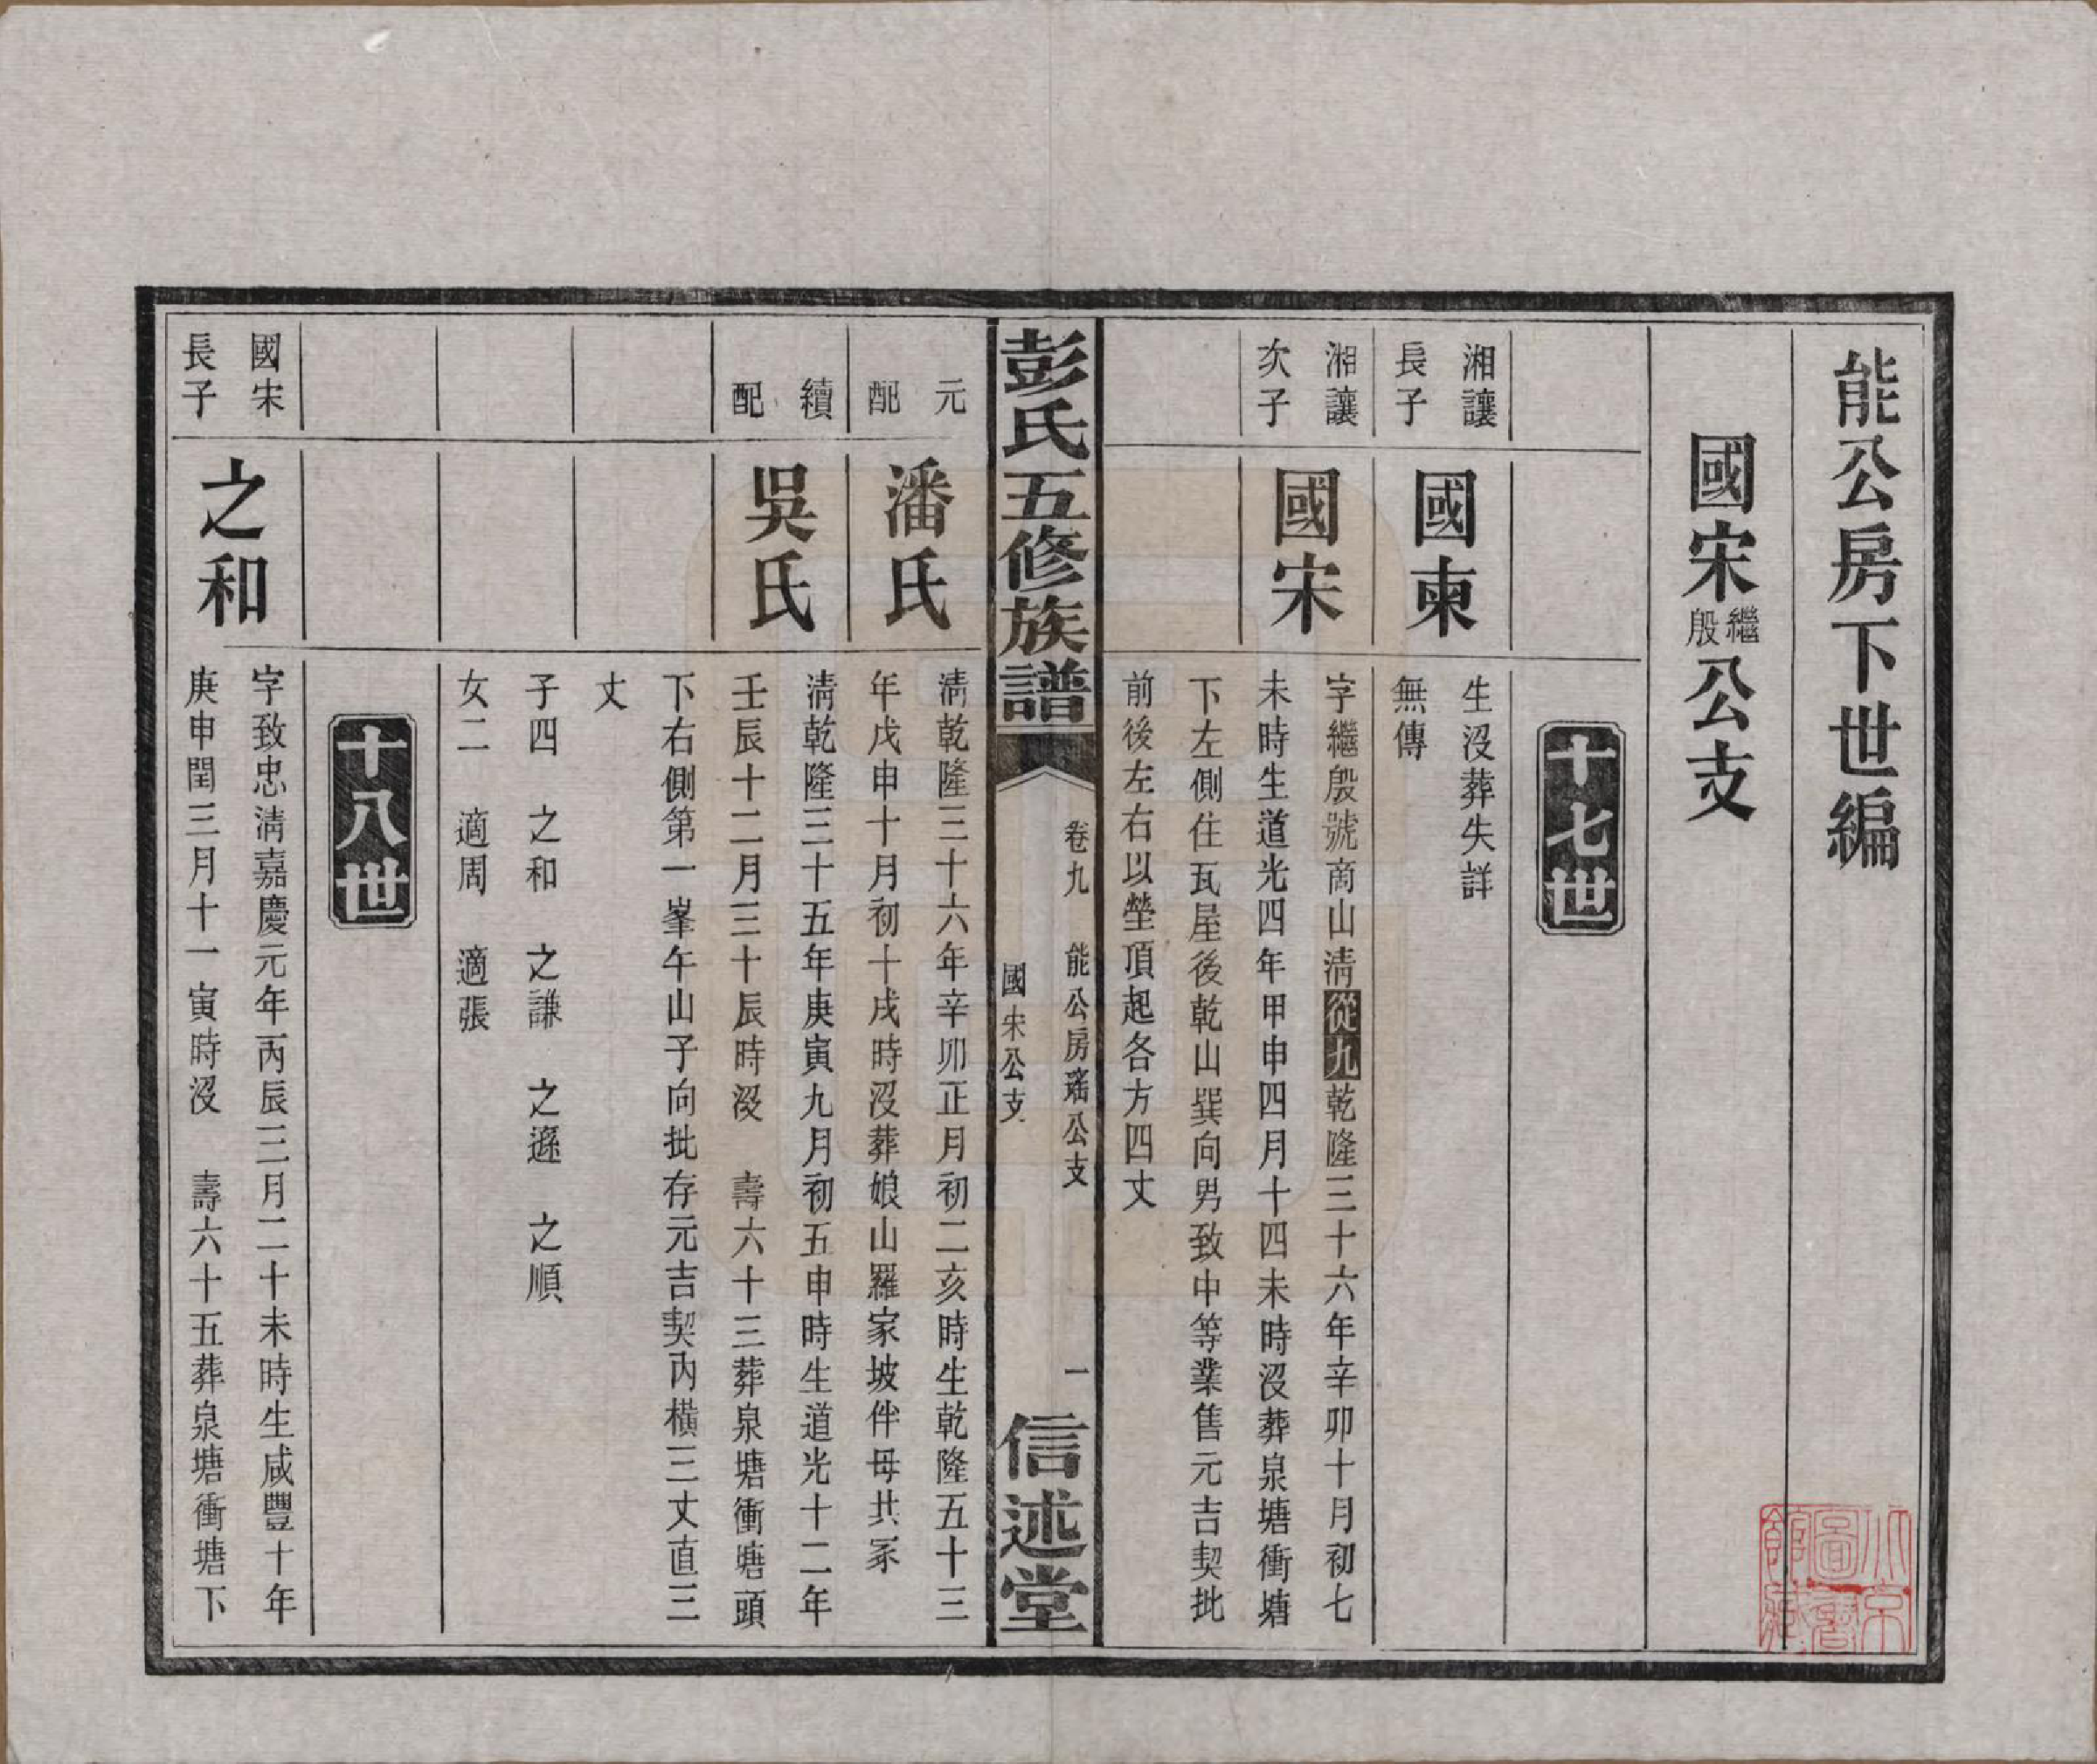 能公房下世編
國宋繼殷公支
十七世
湘讓長子
國柬
生沒葬失詳
無傳
湘讓次子
國宋
字繼殷號商山清從九乾隆三十六年辛卯十月初七
未時生道光四年甲申四月十四未時沒葬泉塘衝塘
下左側住瓦屋後乾山巽向男致中等業售元吉契批
前後左右以塋頂起各方四丈
彭氏五修族譜
卷九 能公房瑤公支
國宋公支
一
信述堂
元配
潘氏
清乾隆三十六年辛卯正月初二亥時生乾隆五十三
年戊申十月初十戌時沒葬娘山羅家坡伴母共冢
續配
吳氏
清乾隆三十五年庚寅九月初五申時生道光十二年
壬辰十二月三十辰時沒 壽六十三葬泉塘衝塘頭
下右側第一峯午山子向批存元吉契內橫三丈直三
丈
子四 之和 之謙 之遜 之順
女二 適周 適張
十八世
國宋長子
之和
字致忠清嘉慶元年丙辰三月二十未時生咸豐十年
庚申閏三月十一寅時沒 壽六十五葬泉塘衝塘下
北京
圖書
館藏